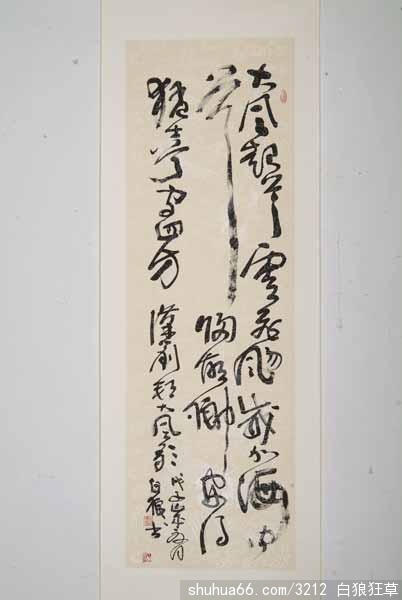 大風起兮雲飛颺威加海内
兮歸故鄉安得
猛士兮守四方 漢劉邦大風歌
戊子 月
白狼书
shuhua66.com/3212 白狼狂草